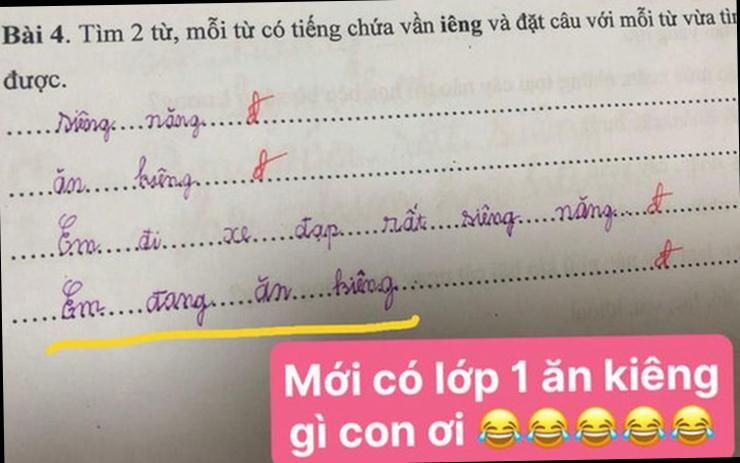 Bài 4. Tìm 2 từ, mỗi từ có tiếng chứa vần iêng và đặt câu với mỗi từ vừa tìm
được.
siêng năng đ
ăn kiêng đ
Em đi xe đạp rất siêng năng đ
Em đang ăn kiêng đ
Mới có lớp 1 ăn kiêng
gì con ơi 😂😂😂😂😂